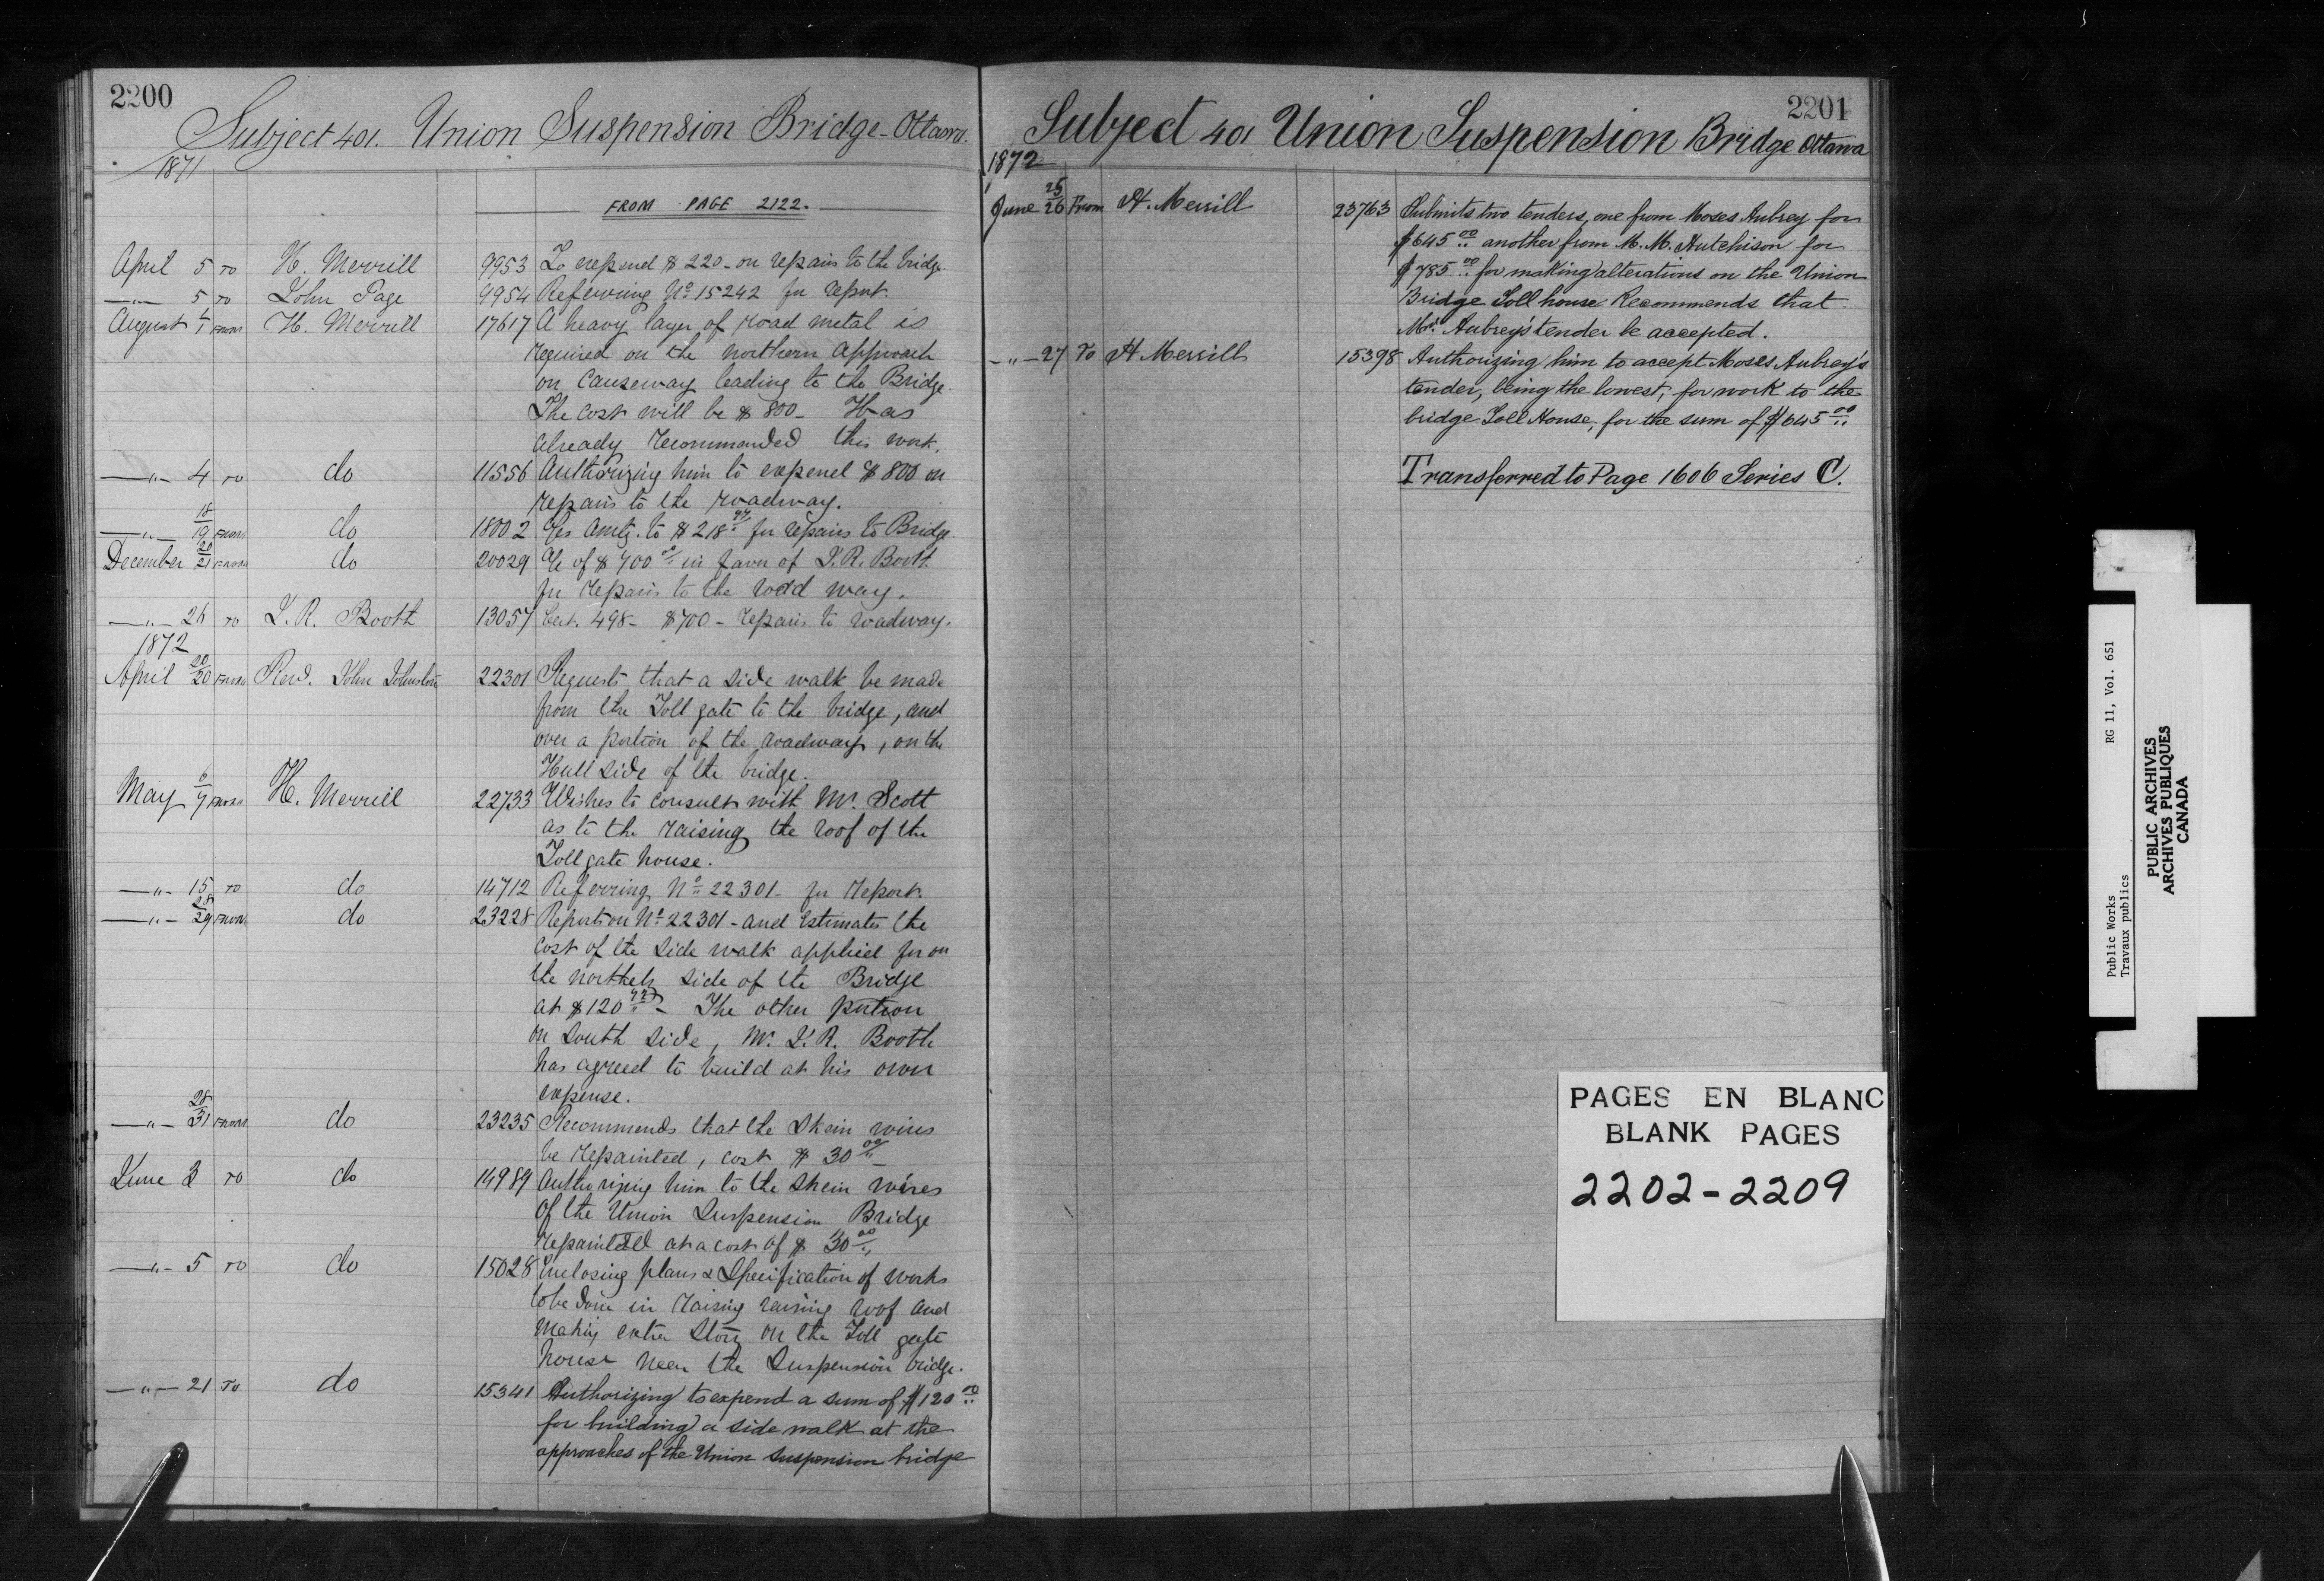 2200
Subject 401. Union Suspension Bridge - Ottawa.
1871
FROM PAGE 2122.
April 5 TO H. Merrill 9953 To expend $ 220 - on repairs to the bridge.
—"— 5 TO John Page 9954 Referring No 15242 for report.
August 1/1 FROM H. Merrill 17617 A heavy layer of road metal is
required on the northern approach
on Causeway leading to the Bridge.
The cost will be $ 800 - Has
already recommended this work.
—"— 4 TO do 11556 Authorizing him to expend $ 800 on
repairs to the roadway.
—"— 18/19 FROM do 18002 Amtg. to $ 218 97 for repairs to Bridge.
December 20/21 FROM do 20029 of $ 700 00 in favor of J. R. Booth
for repairs to the road way.
—"— 26 TO J. R. Booth 13057 Cert. 498 - $700 - repairs to roadway.
1872
April 20/20 FROM Revd. John Johnston 22301 Requests that a side walk be made
from the Toll gate to the bridge, and
over a portion of the roadway, on the
Hull side of the bridge.
May 6/7 FROM H. Merrill 22733 Wishes to consult with Mr. Scott
as to the raising the roof of the
Toll gate house.
—"— 15 TO do 14712 Referring No 22301 - for report.
—"— 28/29 FROM do 23228 Reports on No 22301 - and Estimates the
cost of the side walk applied for on
the side of the Bridge
at $ 120 - The other portion
on South side, Mr. J. R. Booth
has agreed to build at his own
expense.
—"— 28/31 FROM do 23235 Recommends that the Skein wires
be repainted, cost $ 30 00
June 3 TO do 14989 Authorizing him to the skein wires
of the Union Suspension Bridge
repainted at a cost of $ 30 00
—"— 5 TO do 15028 Enclosing plans & Specification of works
to be done in raising raising roof and
making extra story on the Toll gate
house near the Suspension bridge.
—"— 21 To do 15341 Authorizing to expend a sum of $120 00
for building a side walk at the
approaches of the Union Suspension bridge
2201
Subject 401 Union Suspension Bridge Ottawa
1872
June 25/26 From H. Merrill 23763 Submits two tenders, one from Moses Aubrey for
$645 00 another from M. M. Hutchison for
$785 00 for making alterations on the Union
Bridge Toll house Recommends that
Mr. Aubrey's tender be accepted.
—"— 27 To H Merrill 15398 Authorizing him to accept Moses Aubrey's
tender, being the lowest, for work to the
bridge Toll House, for the sum of $645 00
Transferred to Page 1606 Series C.
PAGES EN BLANC
BLANK PAGES
2202-2209
Public Works RG 11, Vol. 651
Travaux publics
PUBLIC ARCHIVES
ARCHIVES PUBLIQUES
CANADA